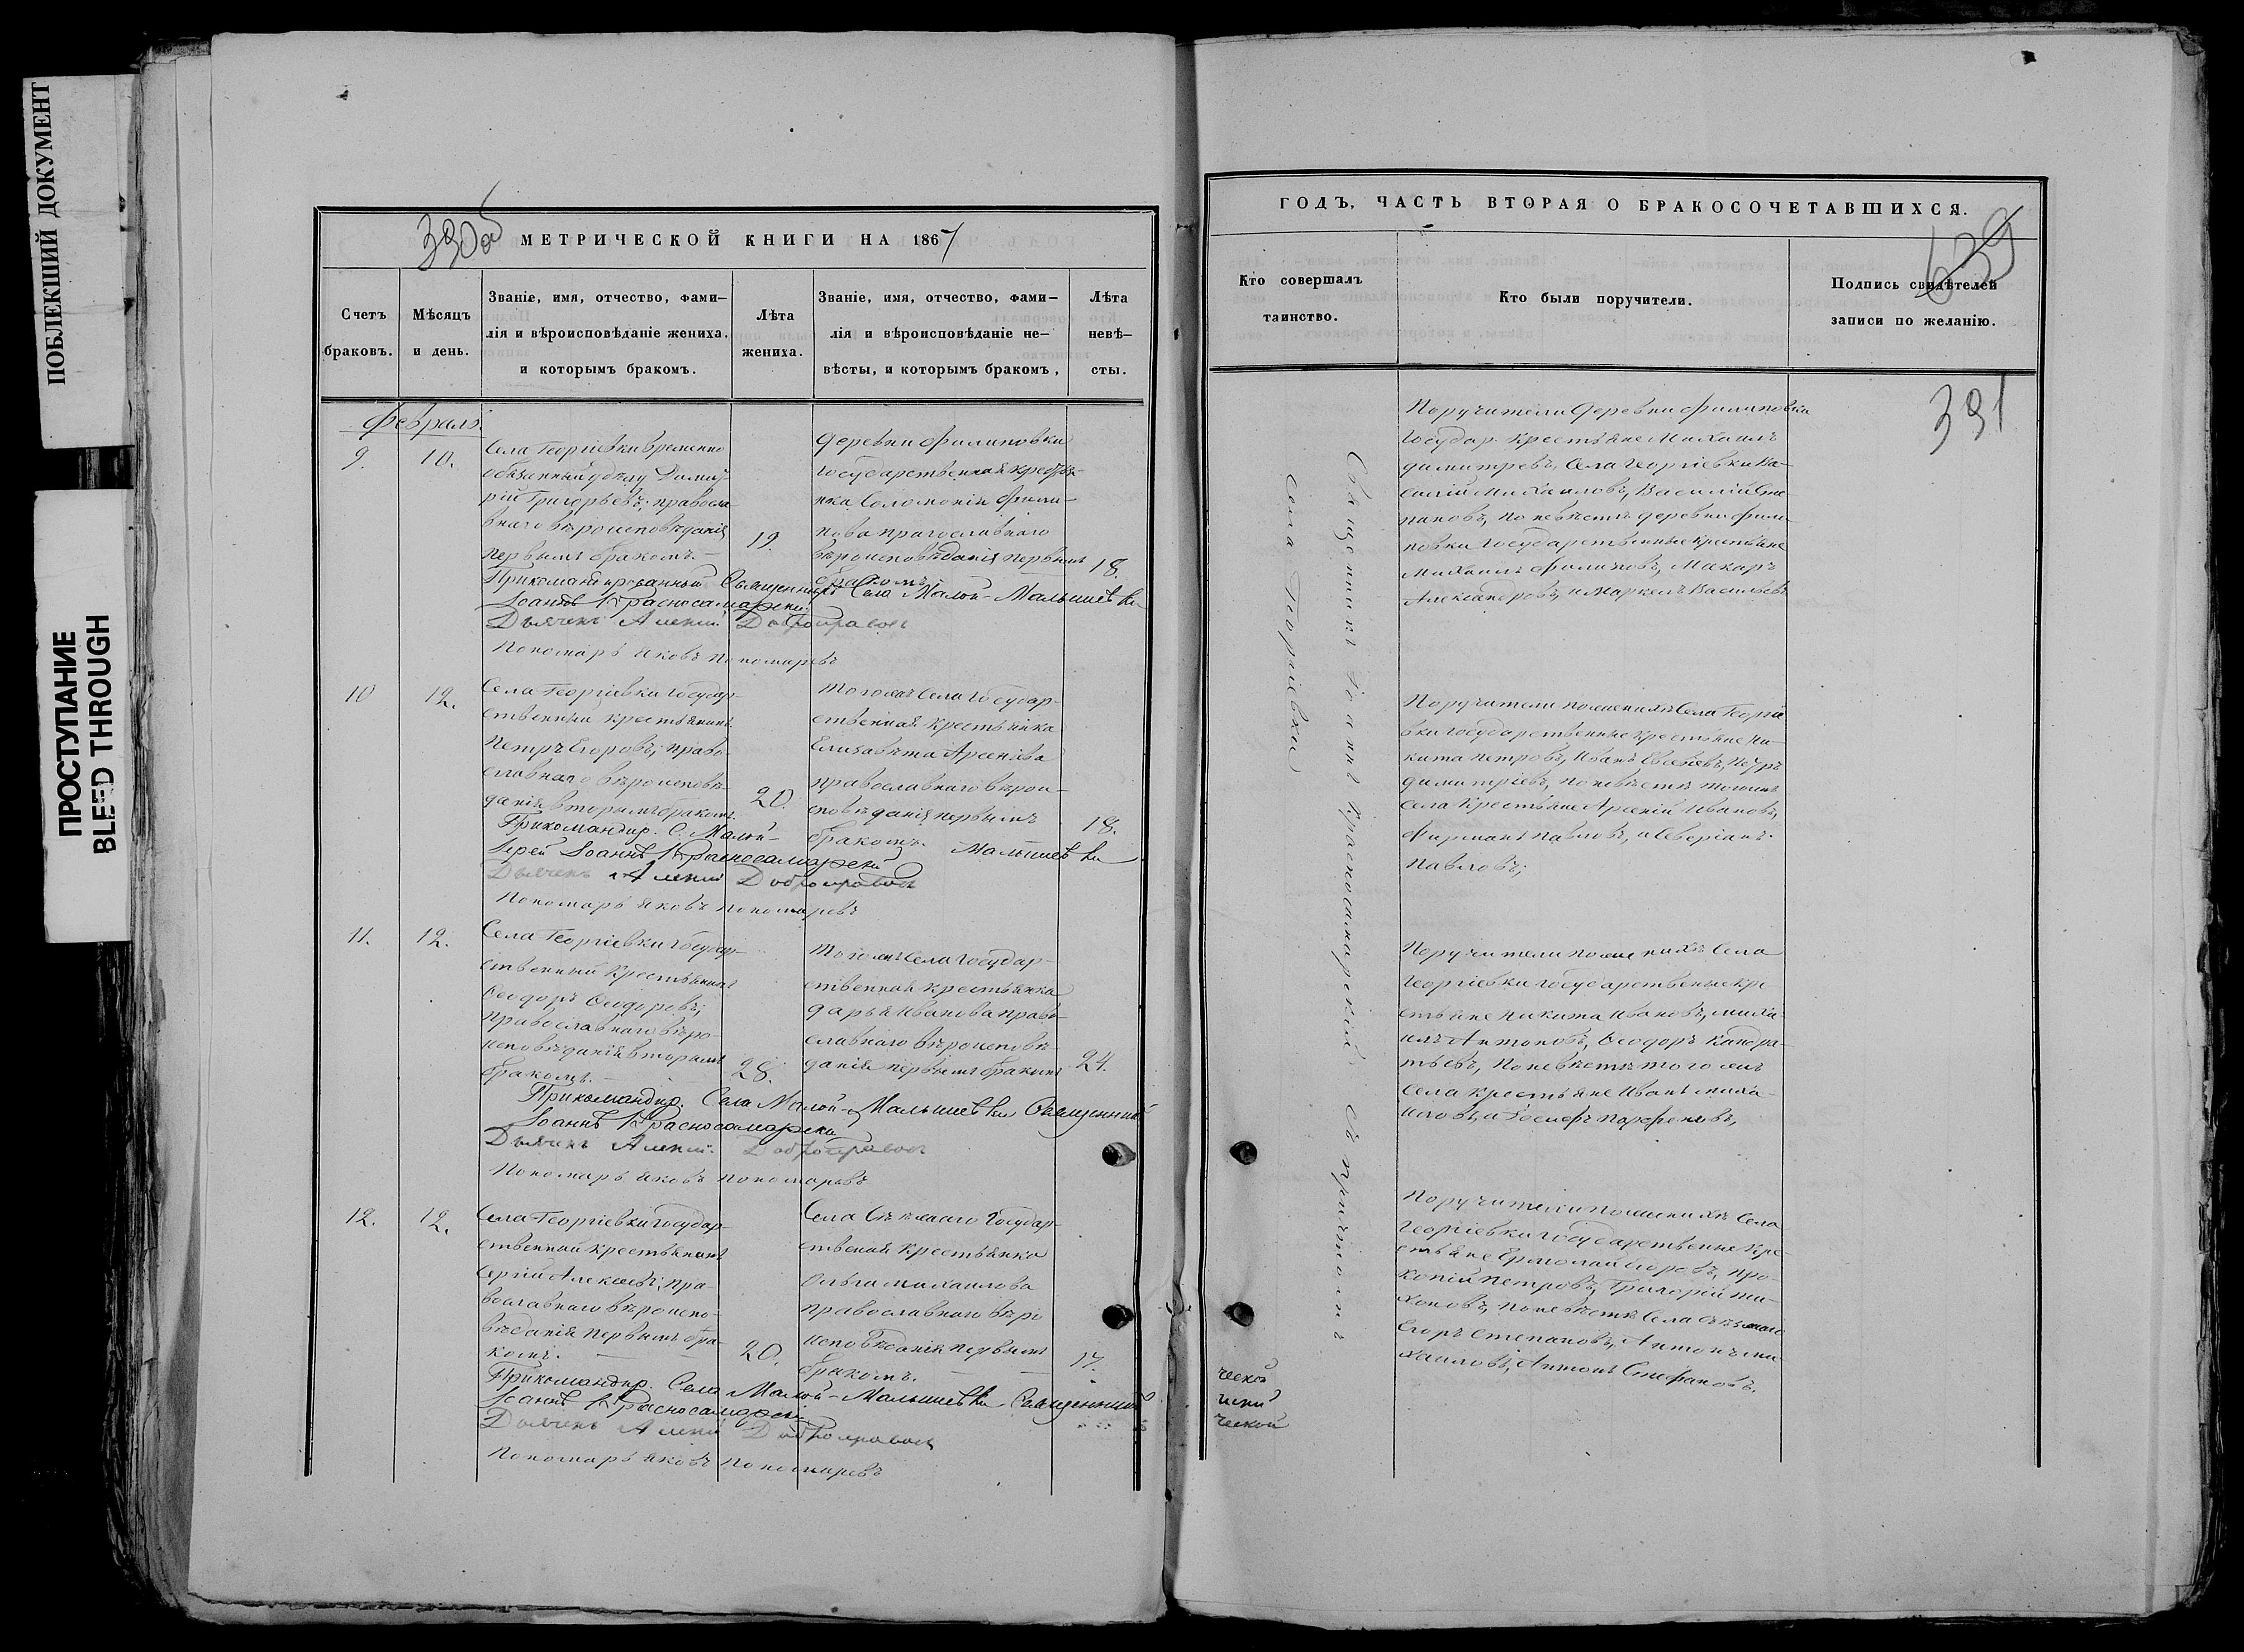 ПОБЛЕКШИЙ ДОКУМЕНТ
ПРОСТУПАНИЕ
BLEED THROUGH
390об
МЕТРИЧЕСКОЙ КНИГИ НА 1867
Счетъ браковъ.
Мѣсяцъ и день.
Званіе, имя, отчество, фами-
лія и вѣроисповѣданіе жениха,
и которымъ бракомъ.
Лѣта жениха.
Званіе, имя, отчество, фами-
лія и вѣроисповѣданіе не-
вѣсты, и которымъ бракомъ,
Лѣта невѣ-
сты.
Февраль.
9.
10.
Села Георгіевки временно
обязанный
Димит-
рій Григорьевъ; правосла
внаго вѣроисповѣданія
первымъ бракомъ.
19.
деревни Филиповки
Государственная крестья-
нка Соломонія Фили-
пова православнаго
вѣроисповѣданія первымъ
бракомъ.
18.
Прикомандированный Священникъ Села Малой-Малышевки
Іоаннъ Красносамарскій
Дьячекъ Алексій Добронравовъ
Пономарь Яковъ Пономаревъ
10
12.
Села Георгіевки Государ-
ственный крестьянинъ
Петръ Егоровъ; право-
славнаго вѣроисповѣ-
данія вторымъ бракомъ.
20.
Тогожъ Села Государ-
ственная крестьянка
Елизавета Арсеніева
православнаго вѣрои-
сповѣданія первымъ
бракомъ.
18.
Прикомандир. С. Малой-Малышевки
Іерей Іоаннъ Красносамарскій
Дьячекъ Алексій Добронравовъ
Пономарь Яковъ Пономаревъ
11.
12.
Села Георгіевки Государ-
ственный крестьянинъ
Ѳеодоръ Ѳеодоровъ;
православнаго вѣро-
исповѣданія вторымъ
бракомъ.
28.
Тогожъ Села Государ-
ственная крестьянка
Дарья Иванова право-
славнаго вѣроисповѣ-
данія первымъ бракомъ
24.
Прикомандир. Села Малой-Малышевки Священникъ
Іоаннъ Красносамарскій
Дьячекъ Алексій Добронравовъ
Пономарь Яковъ Пономаревъ
12.
12.
Села Георгіевки Государ-
ственный крестьянинъ
Сергій Алексѣевъ; пра-
вославнаго вѣроиспо-
вѣданія первымъ бра-
комъ.
20.
Села Съѣзжаго Государ-
ственая крестьянка
Ольга Михаилова
православнаго вѣро
исповѣданія первымъ
бракомъ.
17.
Прикомандир. Села Малой-Малышевки Священникъ
Іоаннъ Красносамарскій
Дьячекъ Алексій Добронравовъ
Пономарь Яковъ Пономаревъ
ГОДЪ, ЧАСТЬ ВТОРАЯ О БРАКОСОЧЕТАВШИХСЯ.
639
Кто совершалъ таинство.
Кто были поручители.
Подпись свидѣтелей
записи по желанію.
391
Священникъ Іоаннъ Красносамарскій съ причтомъ
села Георгіевки
Поручители деревни Филиповки
Государ. крестьяне Михаилъ
Димитревъ, Села Георгіевки Ва-
силій Михаиловъ, Василій Сте-
пановъ, по невѣстѣ деревни Фили-
повки Государственные крестьяне
Михаилъ Филиповъ, Макаръ
Александровъ, и Маркелъ Васильевъ
Поручители по женихѣ Села Георгіе
вки Государственные крестьяне Ни-
кита Петровъ, Иванъ Петръ
Димитріевъ, по невѣстѣ тогожъ
Села крестьяне Арсеній Ивановъ,
Фирманъ Павловъ, и Северіанъ
Павловъ;
Поручители по женихѣ Села
Георгіевки Государственые кре
стьяне Никита Ивановъ, Миха-
илъ Антоновъ, Ѳеодоръ Кандра-
тьевъ, по невѣстѣ тогожъ
Села крестьяне Иванъ Миха-
иловъ, и Іосифъ Парфеновъ,
Поручители по женихѣ Села
Георгіевки Государственые кре-
стьяне Ермолай Егоровъ, Про-
копій Петровъ, Григорій Ти-
хоновъ, по невѣстѣ Села Съѣзжаго
Егоръ Степановъ, Антонъ Ми-
хаиловъ, Антонъ Стефановъ.